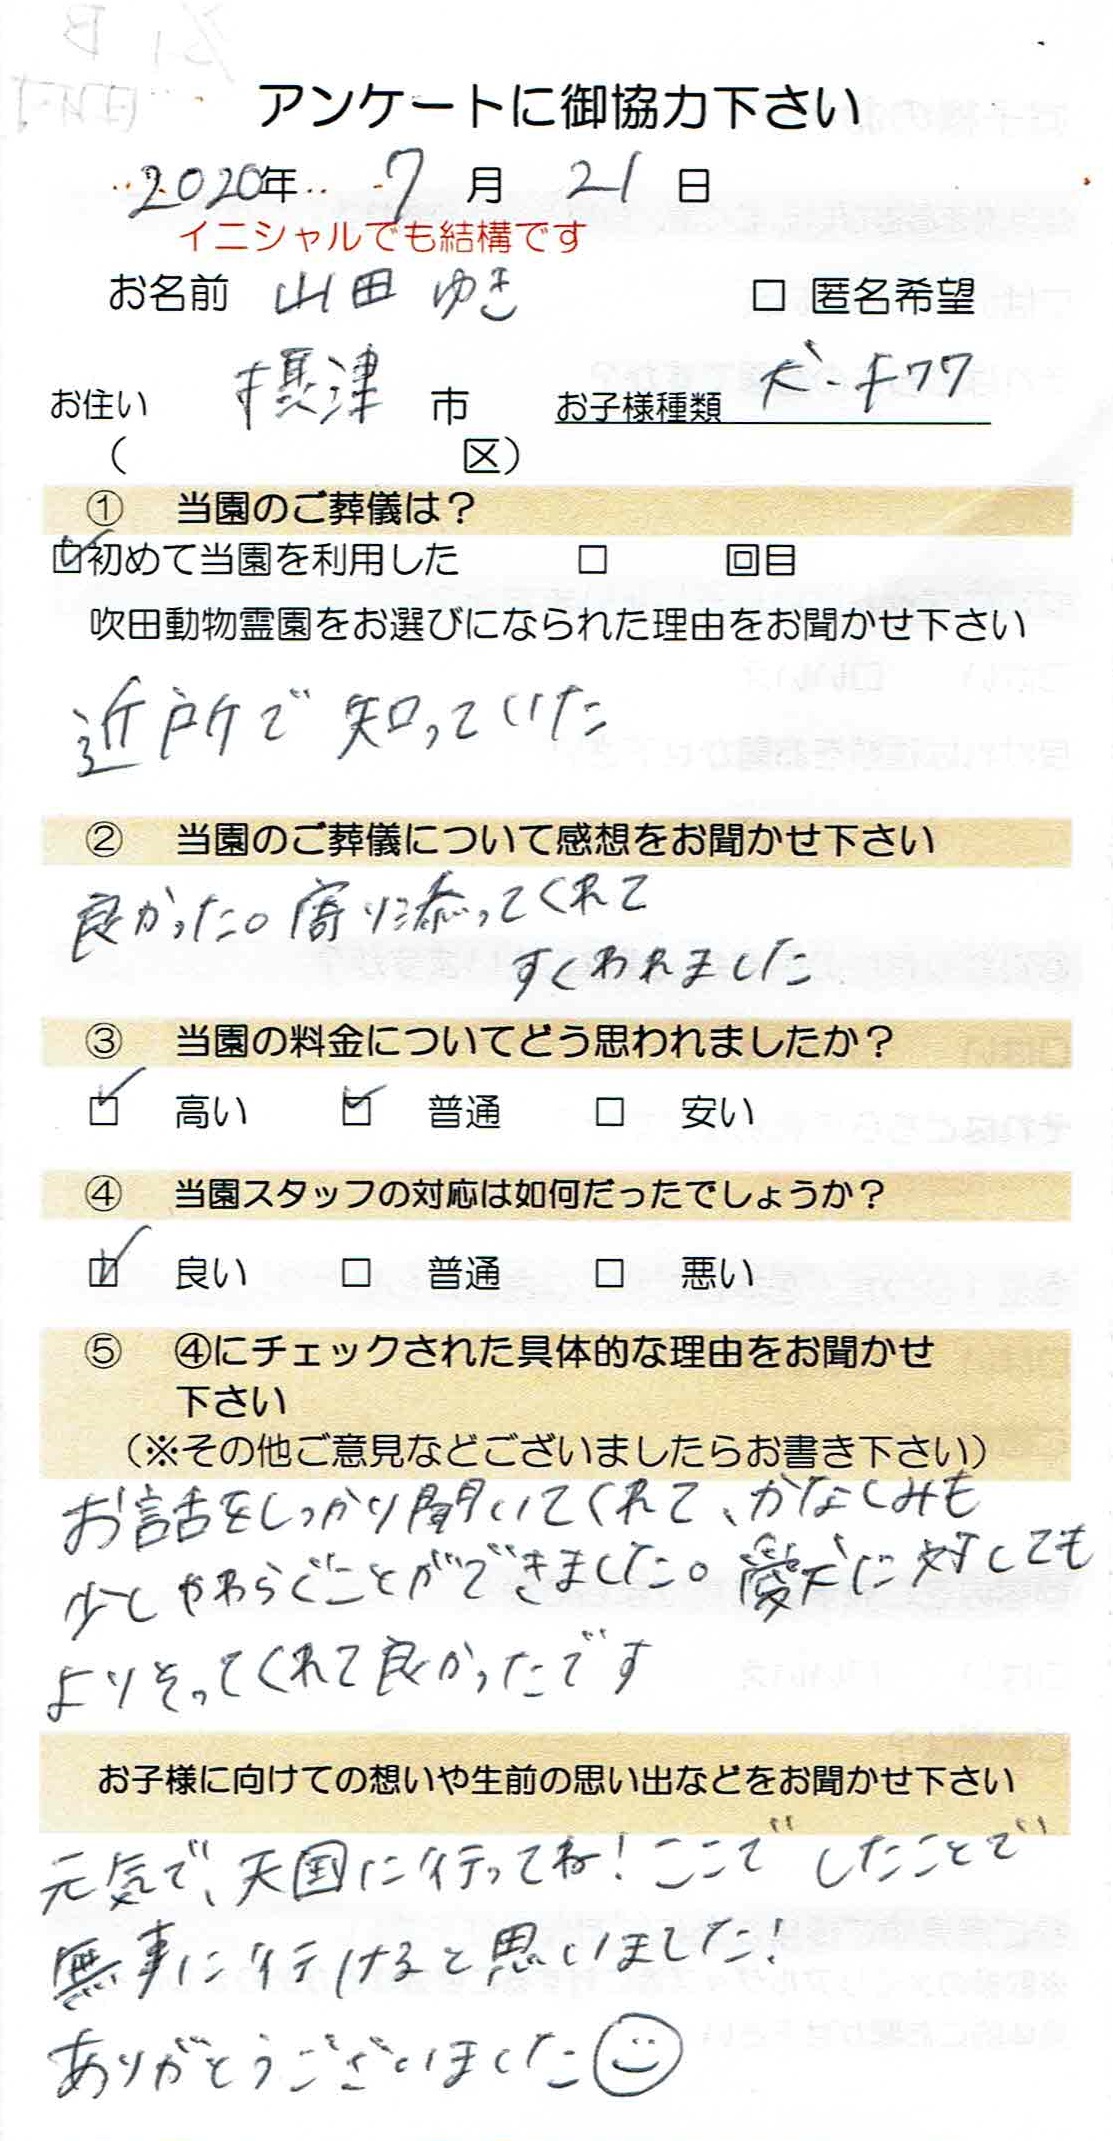 アンケートに御協力下さい
2020年 7月 21日
イニシャルでも結構です
お名前 山田 ゆき □ 匿名希望
お住い 摂津 市 お子様種類 犬・チワワ
( 区)
① 当園のご葬儀は?
☑初めて当園を利用した □ 回目
吹田動物霊園をお選びになられた理由をお聞かせ下さい
近所で知っていた
② 当園のご葬儀について感想をお聞かせ下さい
良かった。寄り添ってくれて
すくわれました
③ 当園の料金についてどう思われましたか?
☑ 高い ☑ 普通 □ 安い
④ 当園スタッフの対応は如何だったでしょうか?
☑ 良い □ 普通 □ 悪い
⑤ ④にチェックされた具体的な理由をお聞かせ
下さい
(※その他ご意見などございましたらお書き下さい)
お話をしっかり聞いてくれて、かなしみも
少しやわらぐことができました。愛犬に対しても
よりそってくれて良かったです
お子様に向けての想いや生前の思い出などをお聞かせ下さい
元気で、天国に行ってね!ここでしたことで
無事に行けると思いました!
ありがとうございました